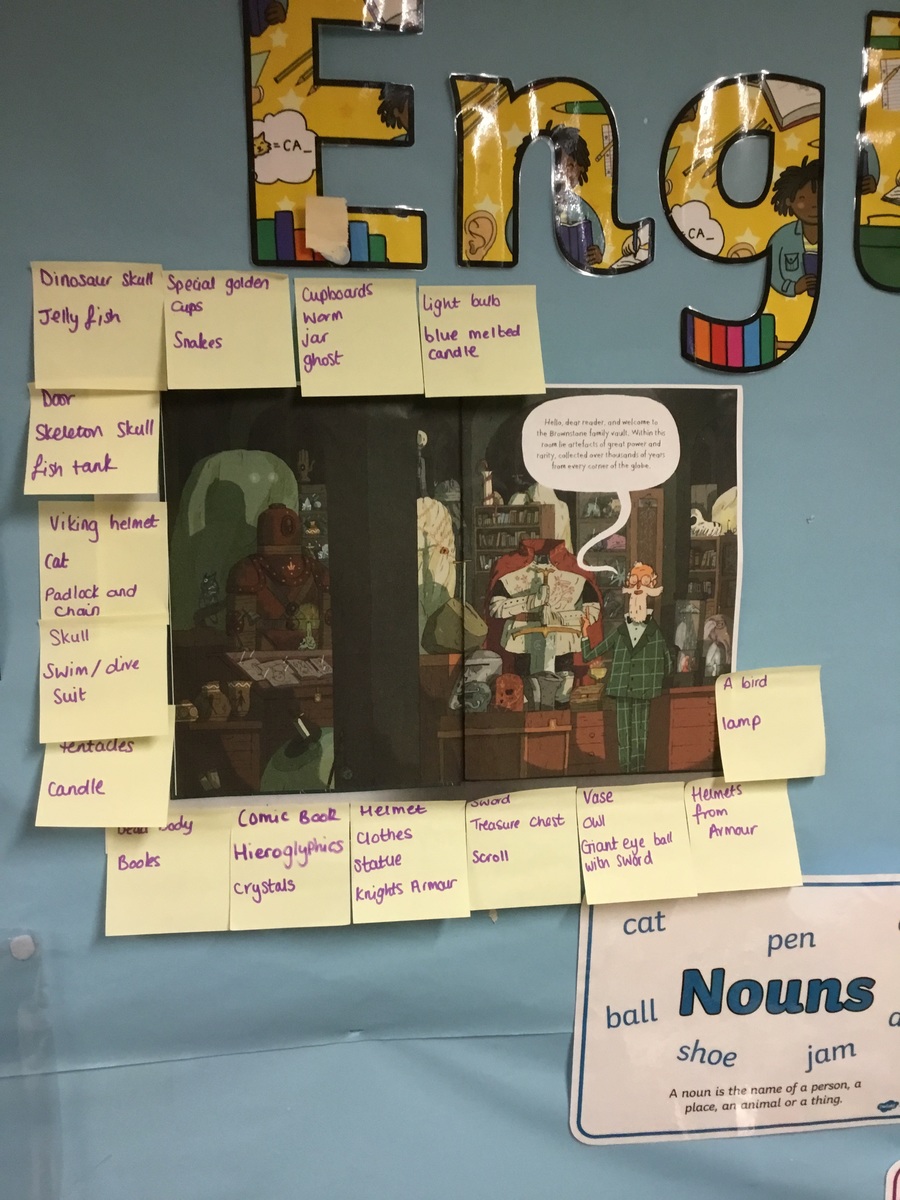 Eng
=CA_
CA_
Dinosaur skull
Jelly fish
Special golden
cups
Snakes
Cupboards
Worm
jar
ghost
Light bulb
blue melted
candle
Door
Skeleton Skull
fish tank
Viking helmet
Cat
Padlock and
chain
Skull
Swim/dive
Suit
Tentacles
Candle
Hello, dear reader, and welcome to
the Brownstone family vault. Within this
room lie artefacts of great power and
rarity, collected over thousands of years
from every corner of the globe.
A bird
lamp
Dead body
Books
Comic Book
Hieroglyphics
crystals
Helmet
Clothes
statue
Knights Armour
Sword
Treasure Chest
Scroll
Vase
Owl
Giant eye ball
with sword
Helmets
from
Armour
cat
pen
ball
Nouns
shoe
jam
A noun is the name of a person, a
place, an animal or a thing.